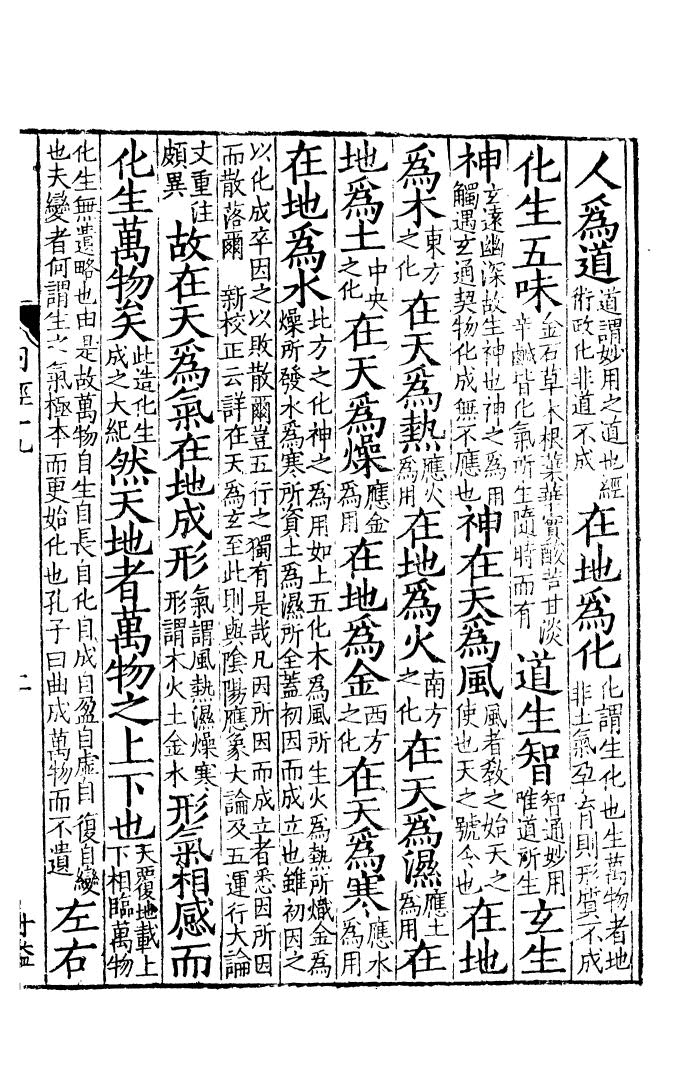 人爲道道謂妙用之道也經術政化非道不成在地爲化化謂生化也生萬物者地非土氣孕育則形質不成
化生五味金石草木根葉華實酸苦甘淡辛鹹皆化氣所生隨時而有道生智智通妙用唯道所生玄生
神玄遠幽深故生神也神之爲用觸遇玄通契物化成無不應也神在天爲風風者教之始天之使也天之號令也在地
爲木東方之化在天爲熱應火爲用在地爲火南方之化在天爲濕應土爲用在
地爲土中央之化在天爲燥應金爲用在地爲金西方之化在天爲寒應水爲用
在地爲水比方之化神之爲用如上五化木爲風所生火爲熱所熾金爲燥所發水爲寒所資土爲濕所全蓋初因而成立也雖初因之
以化成卒因之以敗散爾豈五行之獨有是哉凡因所因而成立者悉因所因而散落爾 新校正云詳在天爲玄至此則與陰陽應象大論及五運行大論
文重注頗異故在天爲氣在地成形氣謂風熱濕燥寒形謂木火土金水形氣相感而
化生萬物矣此造化生成之大紀然天地者萬物之上下也天覆地載上下相臨萬物
化生無遺略也由是故萬物自生自長自化自成自盈自虛自復自變也夫變者何謂生之氣極本而更始化也孔子曰曲成萬物而不遺左右
二